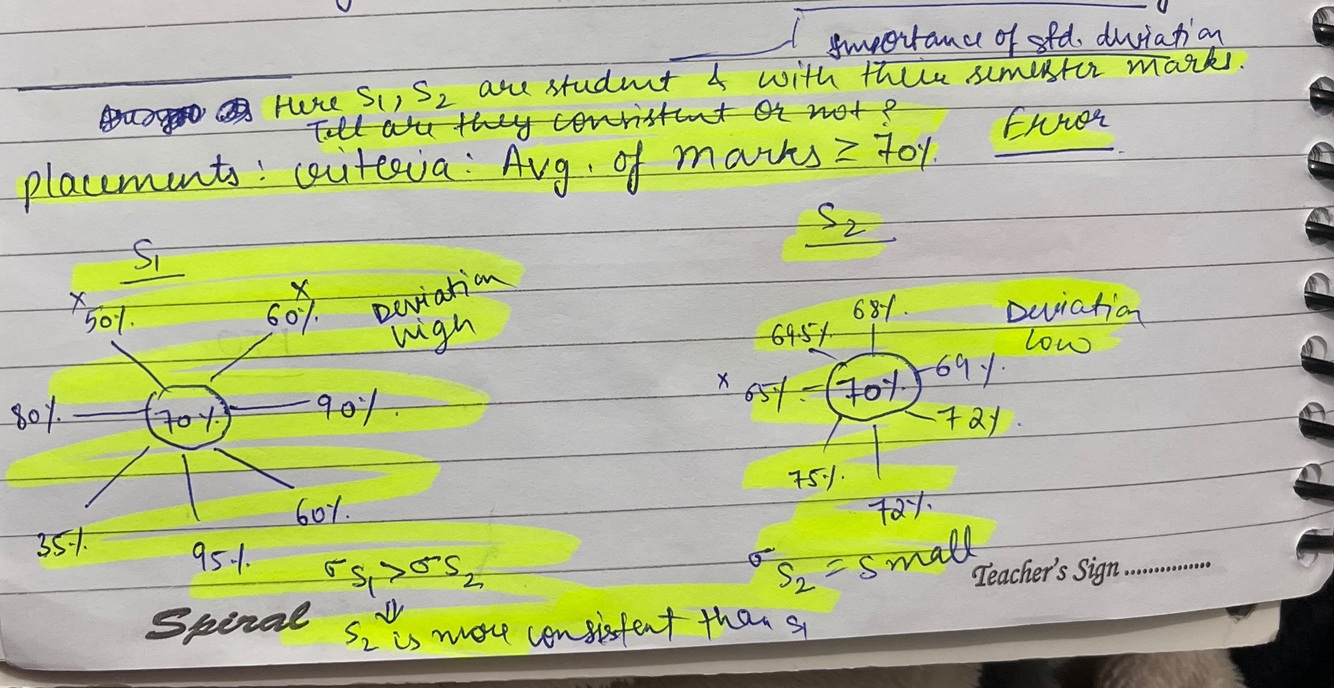 Importance of std. deviation
Here S1, S2 are student & with their semester marks.
Tell are they consistent or not?
Error
placements: criteria: Avg. of marks ≥ 70%
S1
S2
50%
60%
Deviation
high
80%
70%
90%
35%
95%
60%
69.5%
68%
Deviation
low
65%
70%
69%
72%
75%
72%
σS1 > σS2
σS2 = small
⇓
S2 is more consistent than S1
Spiral
Teacher's Sign ...............